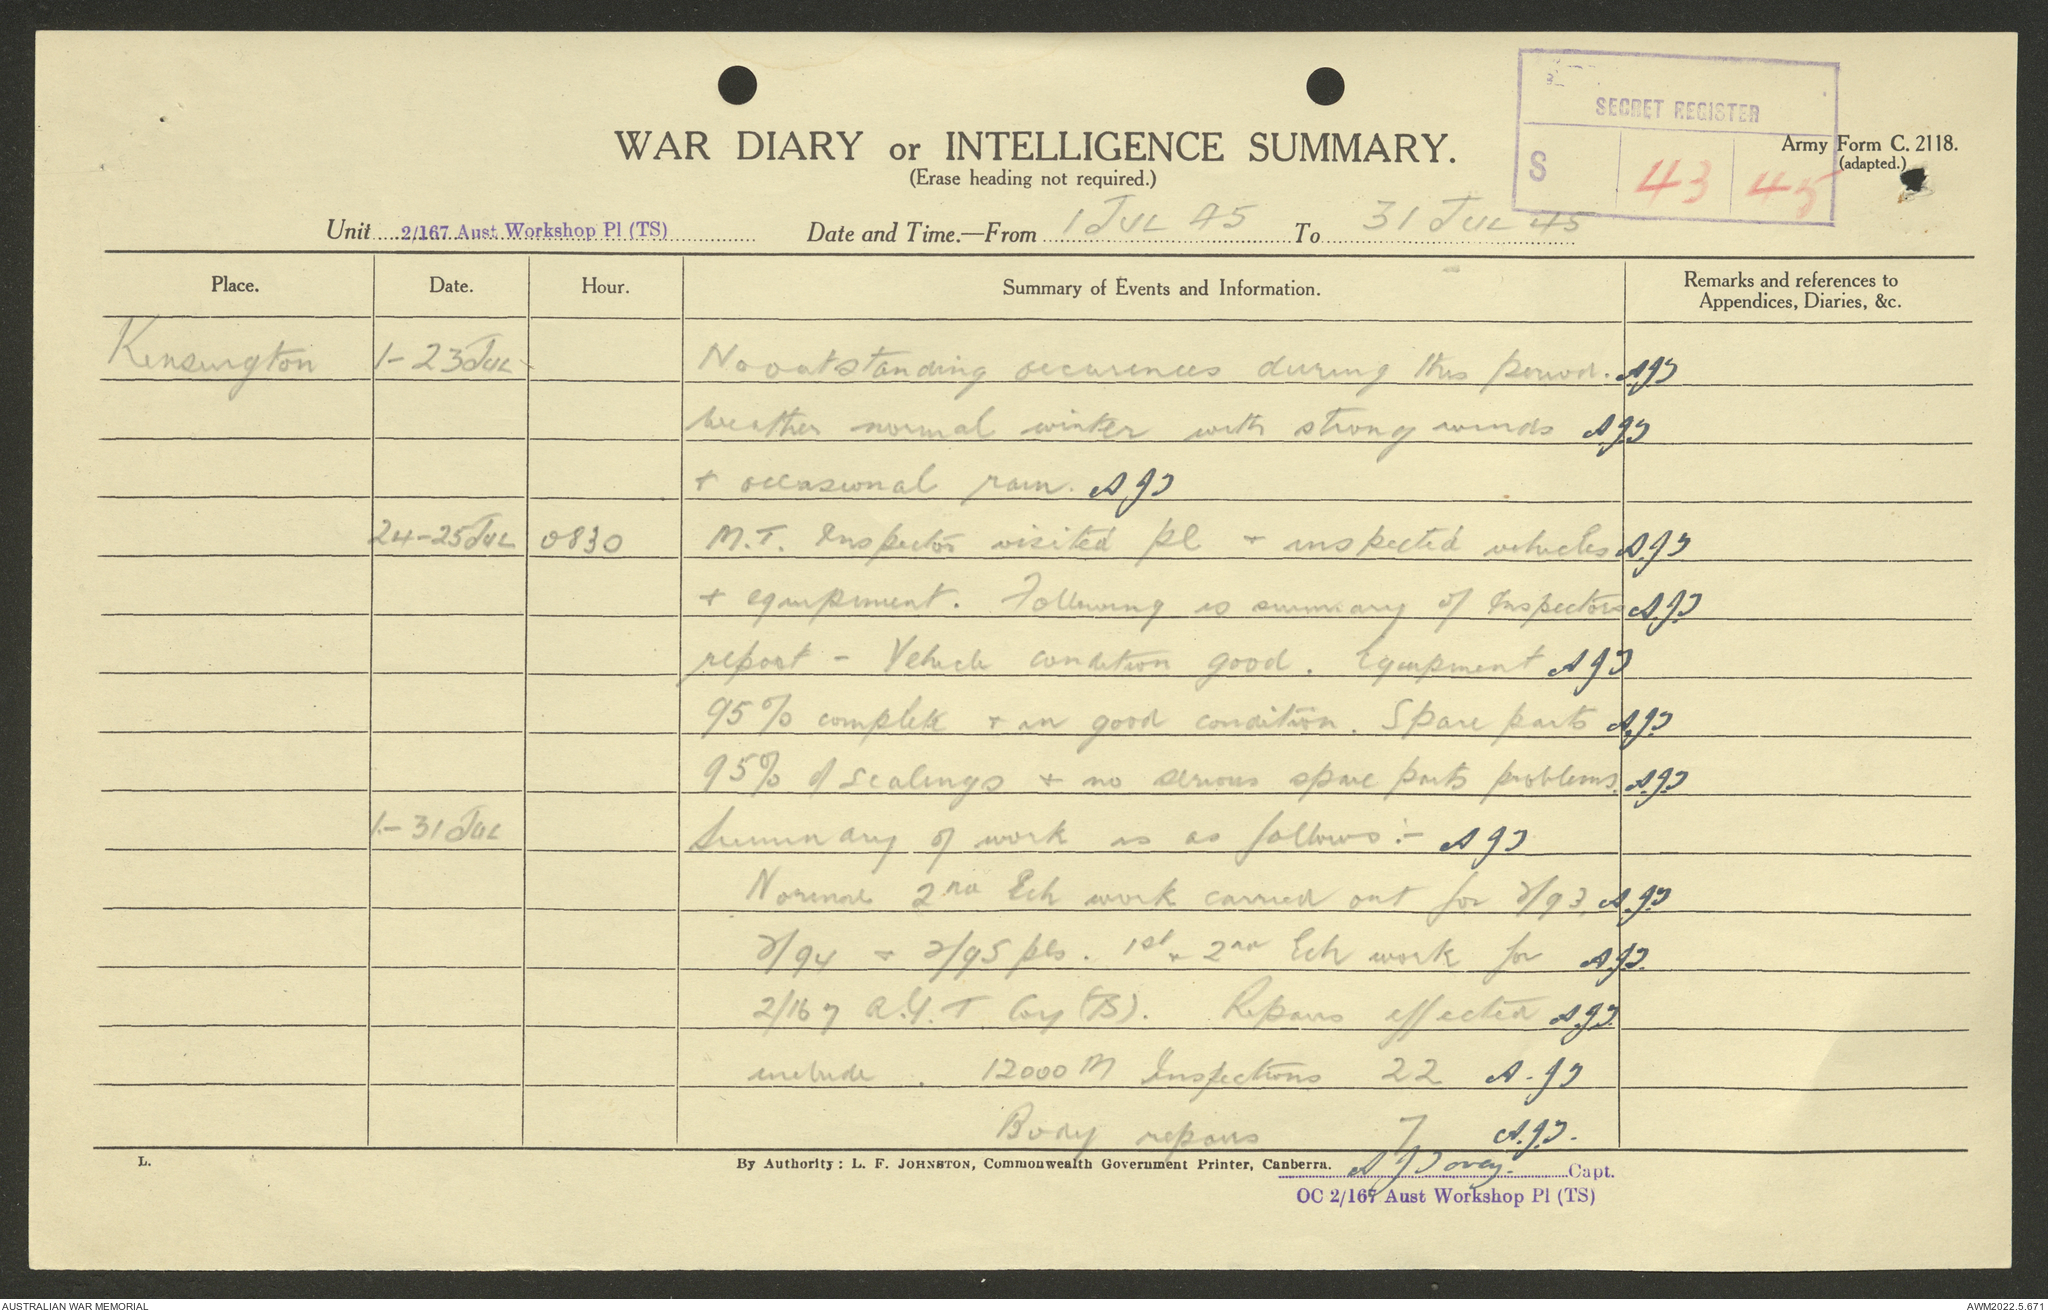 SECRET REGISTER
S 43 45
WAR DIARY or INTELLIGENCE SUMMARY.
(Erase heading not required.)
Army Form C. 2118.
(adapted.)
Unit 2/167 Aust Workshop Pl (TS) Date and Time.—From 1 JUL 45 To 31 JUL 45
Place. Date. Hour. Summary of Events and Information. Remarks and references to
Appendices, Diaries, &c.
Kensington 1-23 JUL No outstanding occurences during this period. A.J.D
Weather normal winter with strong winds A.J.D
+ occasional rain. A J D
24-25 JUL 0830 M.T. Inspector visited pl + inspected vehicles A.J.D
+ equipment. Following is summary of Inspectors A.J.D
report - Vehicle condition good. Equipment A J D
95% complete + in good condition. Spare parts A.J.D
95% of scalings + no serious spare parts problems. A.J.D
1-31 JUL Summary of work is as follows:- A J D
Normal 2nd Ech work carried out for 2/93, A.J.D
2/94 + 2/95 pls. 1st + 2nd Ech work for A.J.D.
2/167 A.G.T. Coy (TS). Repairs effected A.J.D.
include. 12000 M Inspections 22 A.J.D
Body repairs 7 A.J.D.
L. By Authority: L. F. JOHNSTON, Commonwealth Government Printer, Canberra. A J Dovey. Capt.
OC 2/167 Aust Workshop Pl (TS)
AUSTRALIAN WAR MEMORIAL AWM2022.5.671